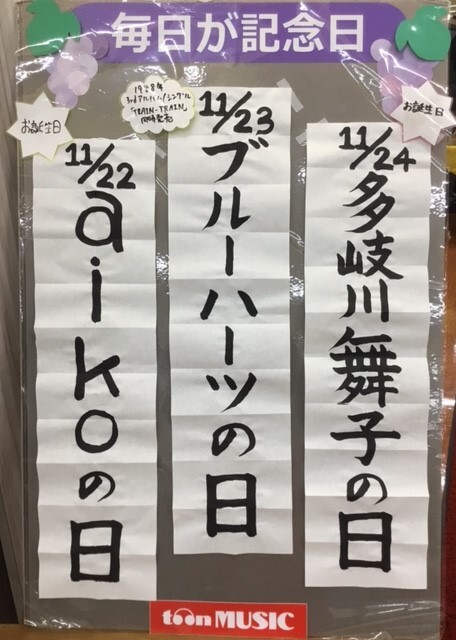 毎日が記念日
お誕生日
11/22
aikoの日
1988年
3rdアルバム/シングル
「TRAIN-TRAIN」
同時発売
11/23
ブルーハーツの日
お誕生日
11/24
多岐川舞子の日
toon MUSIC